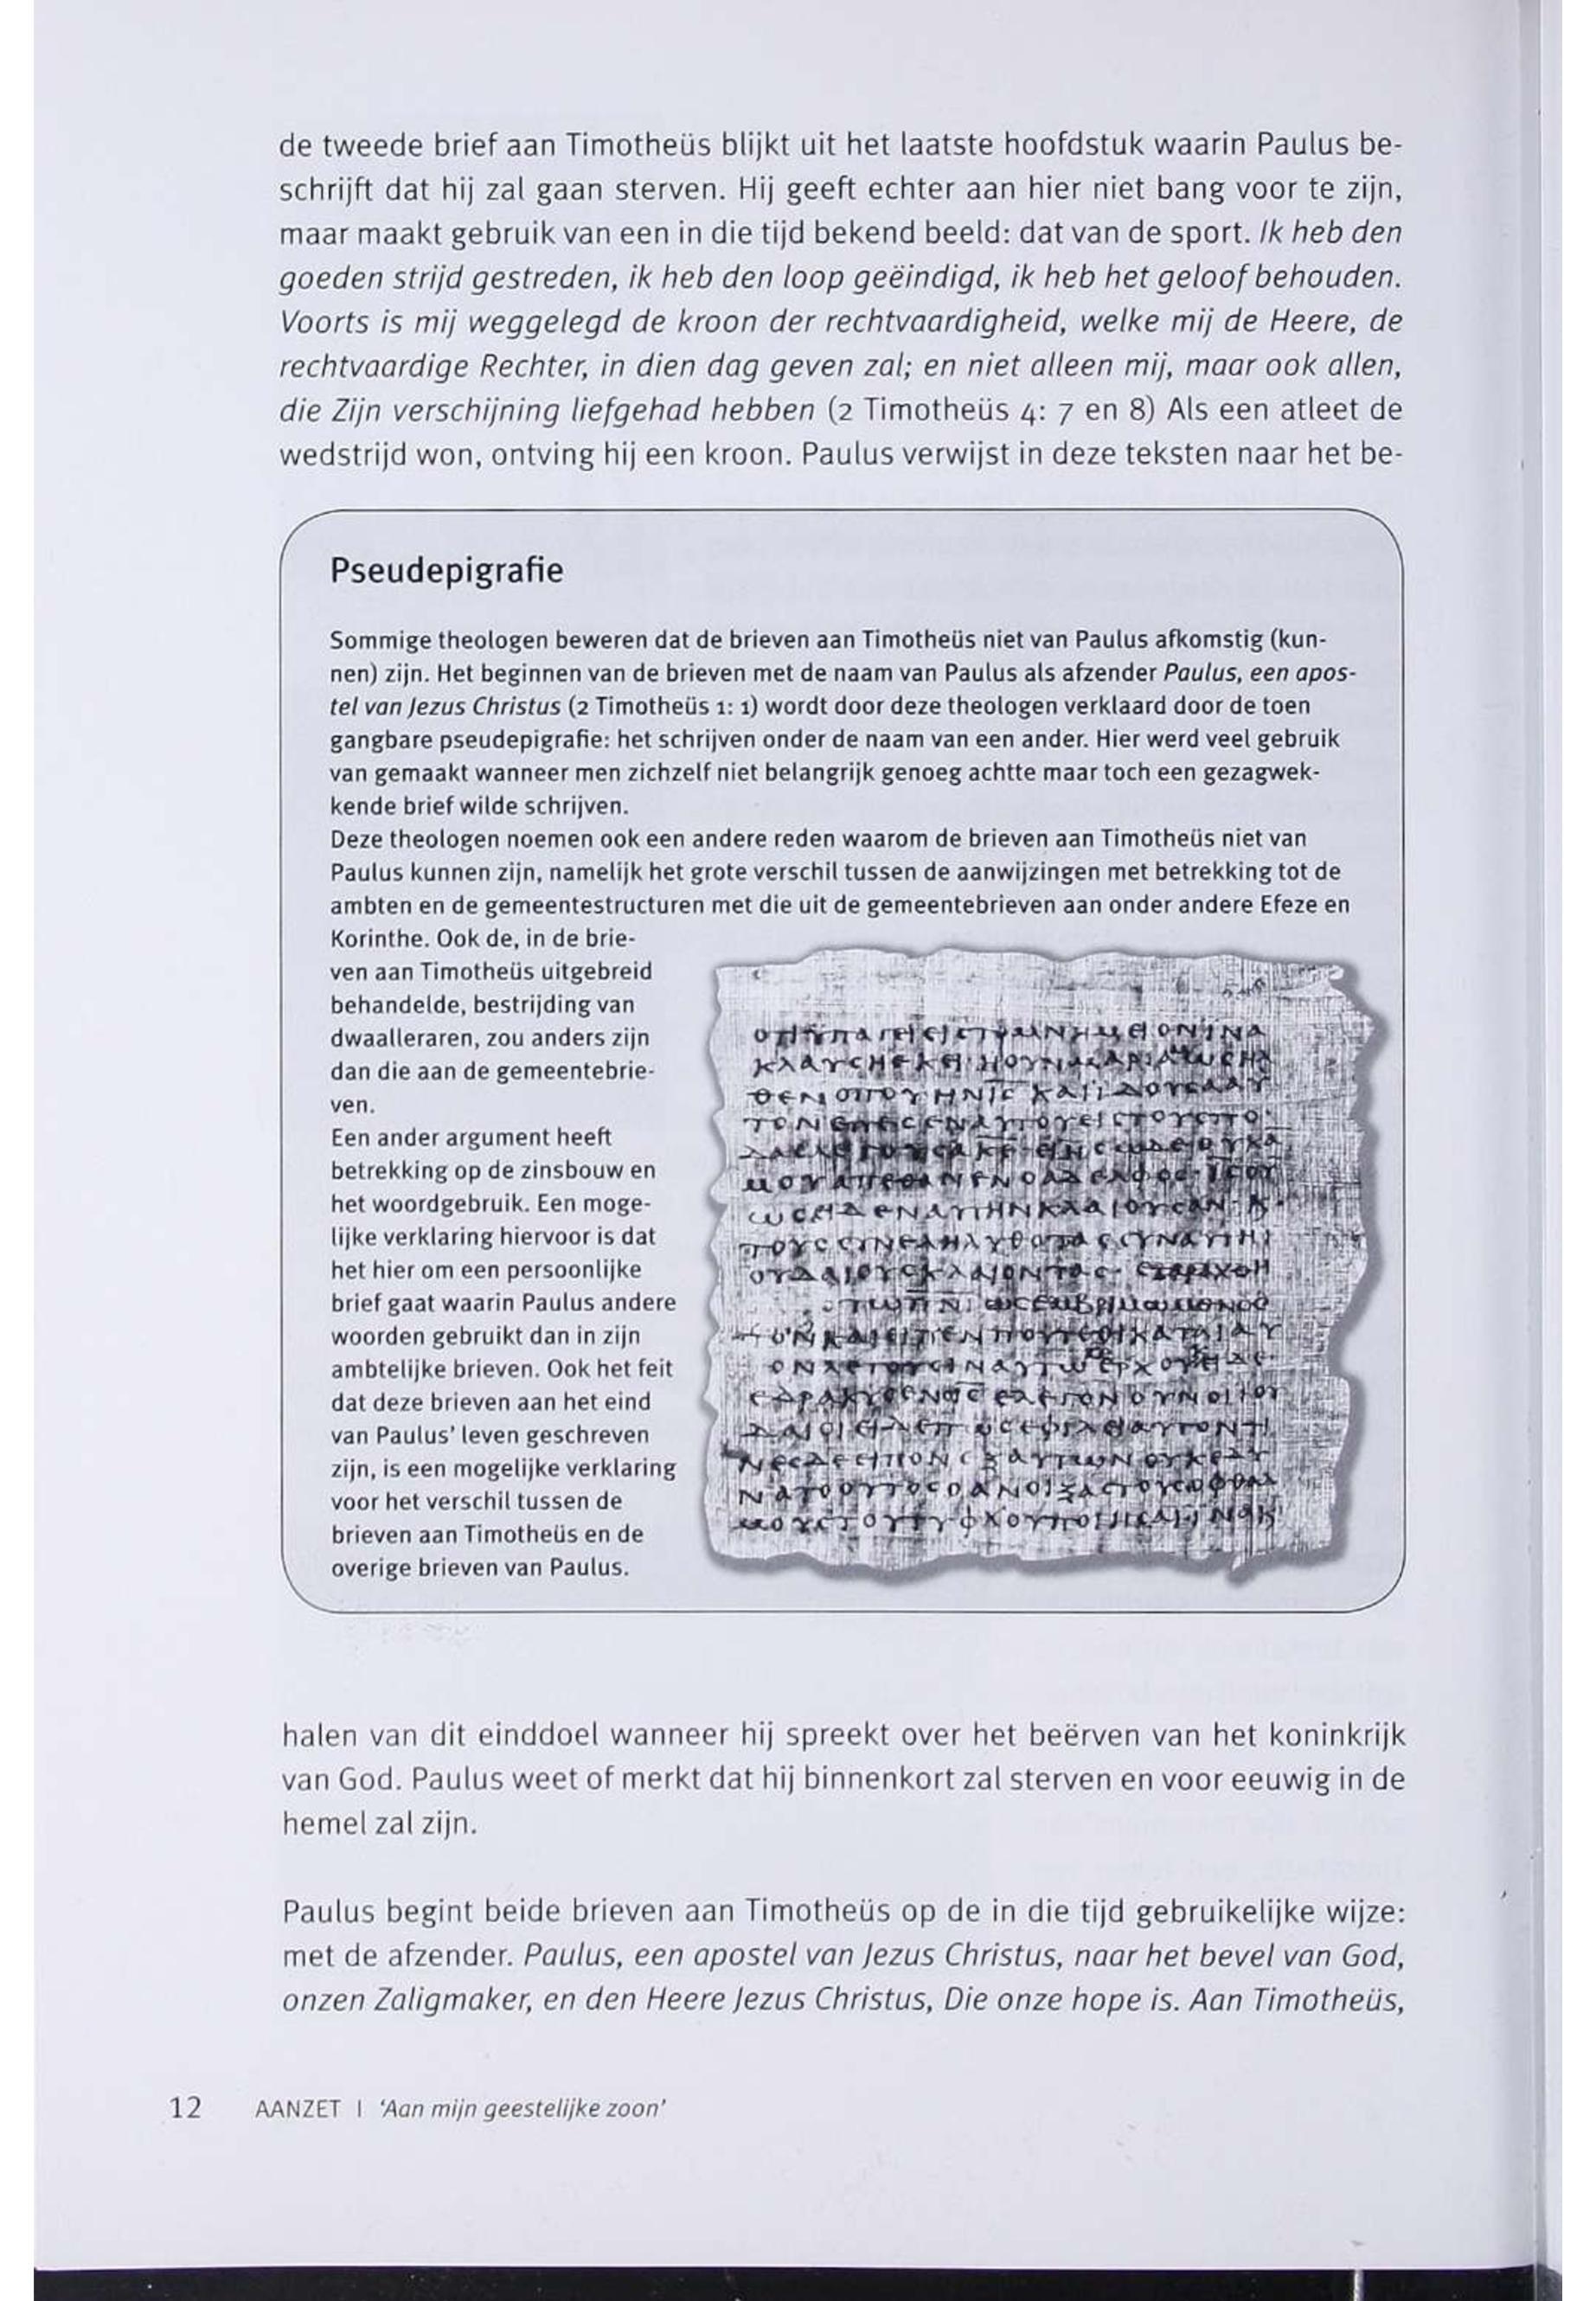 de tweede brief aan Timotheüs blijkt uit het laatste hoofdstuk waarin Paulus be-
schrijft dat hij zal gaan sterven. Hij geeft echter aan hier niet bang voor te zijn,
maar maakt gebruik van een in die tijd bekend beeld: dat van de sport. Ik heb den
goeden strijd gestreden, ik heb den loop geëindigd, ik heb het geloof behouden.
Voorts is mij weggelegd de kroon der rechtvaardigheid, welke mij de Heere, de
rechtvaardige Rechter, in dien dag geven zal; en niet alleen mij, maar ook allen,
die Zijn verschijning liefgehad hebben (2 Timotheüs 4: 7 en 8) Als een atleet de
wedstrijd won, ontving hij een kroon. Paulus verwijst in deze teksten naar het be-
Pseudepigrafie
Sommige theologen beweren dat de brieven aan Timotheüs niet van Paulus afkomstig (kun-
nen) zijn. Het beginnen van de brieven met de naam van Paulus als afzender Paulus, een apos-
tel van Jezus Christus (2 Timotheüs 1: 1) wordt door deze theologen verklaard door de toen
gangbare pseudepigrafie: het schrijven onder de naam van een ander. Hier werd veel gebruik
van gemaakt wanneer men zichzelf niet belangrijk genoeg achtte maar toch een gezagwek-
kende brief wilde schrijven.
Deze theologen noemen ook een andere reden waarom de brieven aan Timotheüs niet van
Paulus kunnen zijn, namelijk het grote verschil tussen de aanwijzingen met betrekking tot de
ambten en de gemeentestructuren met die uit de gemeentebrieven aan onder andere Efeze en
Korinthe. Ook de, in de brie-
ven aan Timotheüs uitgebreid
behandelde, bestrijding van
dwaalleraren, zou anders zijn
dan die aan de gemeentebrie-
ven.
Een ander argument heeft
betrekking op de zinsbouw en
het woordgebruik. Een moge-
lijke verklaring hiervoor is dat
het hier om een persoonlijke
brief gaat waarin Paulus andere
woorden gebruikt dan in zijn
ambtelijke brieven. Ook het feit
dat deze brieven aan het eind
van Paulus' leven geschreven
zijn, is een mogelijke verklaring
voor het verschil tussen de
brieven aan Timotheüs en de
overige brieven van Paulus.
halen van dit einddoel wanneer hij spreekt over het beërven van het koninkrijk
van God. Paulus weet of merkt dat hij binnenkort zal sterven en voor eeuwig in de
hemel zal zijn.
Paulus begint beide brieven aan Timotheüs op de in die tijd gebruikelijke wijze:
met de afzender. Paulus, een apostel van Jezus Christus, naar het bevel van God,
onzen Zaligmaker, en den Heere Jezus Christus, Die onze hope is. Aan Timotheüs,
12 AANZET | 'Aan mijn geestelijke zoon'